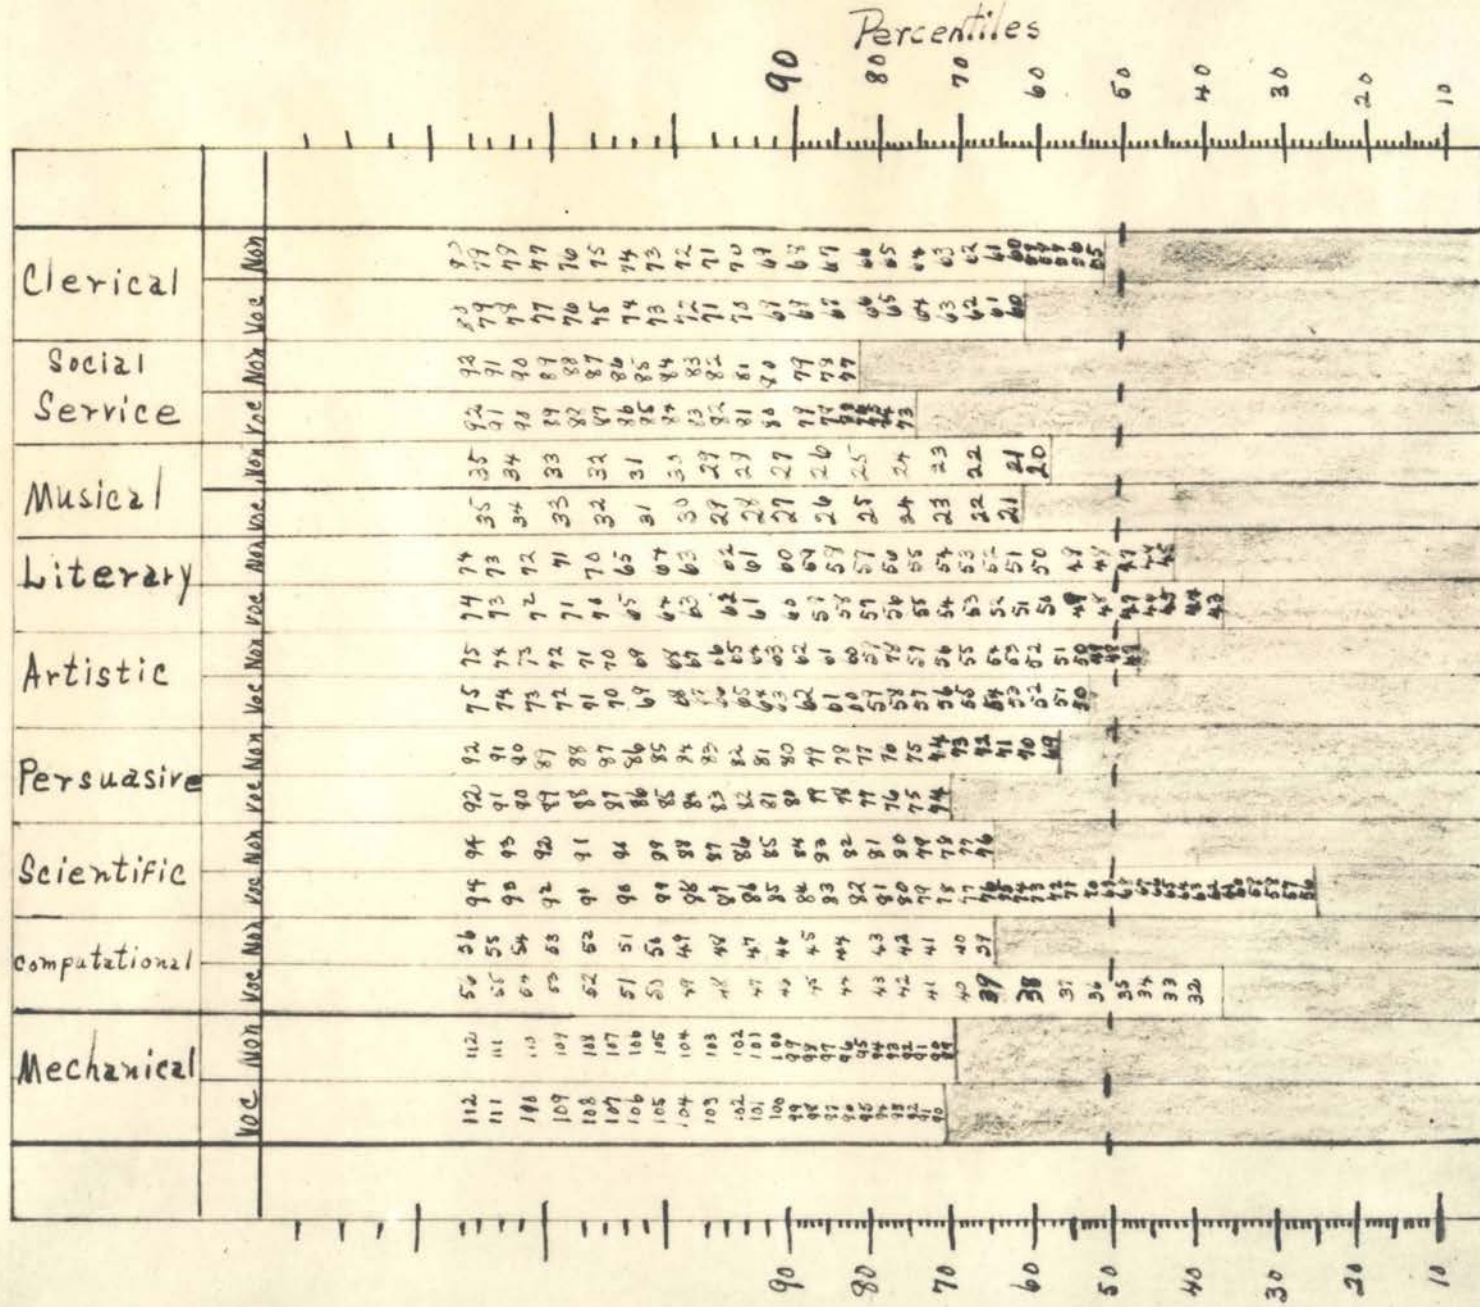 Percentiles
90 80 70 60 50 40 30 20 10
Clerical
Non 79 78 77 76 75 74 73 72 71 70 69 68 67 66 65 64 63 62 61 60
Voc 79 78 77 76 75 74 73 72 71 70 69 68 67 66 65 64 63 62 61 60
Social
Service
Non 92 91 90 89 88 87 86 85 84 83 82 81 80 79 78 77
Voc 92 91 90 89 88 87 86 85 84 83 82 81 80 79 78 73
Musical
Non 35 34 33 32 31 30 29 28 27 26 25 24 23 22 21 20
Voc 35 34 33 32 31 30 29 28 27 26 25 24 23 22 21
Literary
Non 74 73 72 71 70 65 64 63 62 61 60 59 58 57 56 55 54 53 52 51 50 49 48 47
Voc 74 73 72 71 70 65 64 63 62 61 60 59 58 57 56 55 54 53 52 51 50 49 48 47 43
Artistic
Non 75 74 73 72 71 70 69 68 67 66 65 64 63 62 61 60 59 58 57 56 55 54 53 52 51 50
Voc 75 74 73 72 71 70 69 68 67 66 65 64 63 62 61 60 59 58 57 56 55 54 53 52 51 50
Persuasive
Non 92 91 90 89 88 87 86 85 84 83 82 81 80 79 78 77 76 75 74 73 72 71 70 69
Voc 92 91 90 89 88 87 86 85 84 83 82 81 80 79 78 77 76 75 74
Scientific
Non 94 93 92 91 90 89 88 87 86 85 84 83 82 81 80 79 78 77 76
Voc 94 93 92 91 90 89 88 87 86 85 84 83 82 81 80 79 78 77 76
computational
Non 56 55 54 53 52 51 50 49 48 47 46 45 44 43 42 41 40 39
Voc 56 55 54 53 52 51 50 49 48 47 46 45 44 43 42 41 40 39 38 37 36 35 34 33 32
Mechanical
Non 112 111 110 109 108 107 106 105 104 103 102 101 100 99 98 97 96 95 94 93 92 91 90 89
VOC 112 111 110 109 108 107 106 105 104 103 102 101 100 99 98 97 96 95 94 93 92 91 90
90 80 70 60 50 40 30 20 10